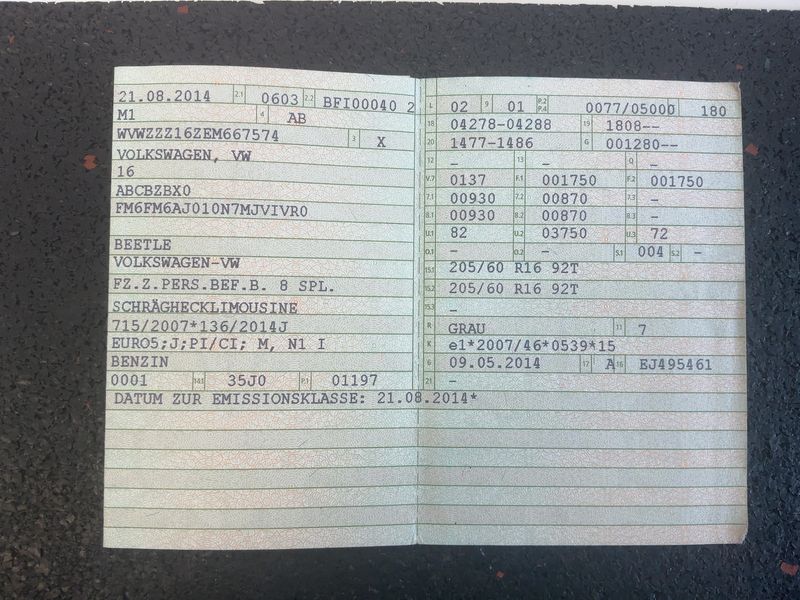 21.08.2014 2.1 0603 2.2 BFI00040 2
M1 4 AB
WVWZZZ16ZEM667574 3 X
VOLKSWAGEN, VW
16
ABCBZBX0
FM6FM6AJ010N7MJVIVR0
BEETLE
VOLKSWAGEN-VW
FZ.Z.PERS.BEF.B. 8 SPL.
SCHRÄGHECKLIMOUSINE
715/2007*136/2014J
EURO5;J;PI/CI; M, N1 I
BENZIN
0001 14.1 35J0 P.1 01197
DATUM ZUR EMISSIONSKLASSE: 21.08.2014*
L 02 9 01 P.2 P.4 0077/05000 180
18 04278-04288 19 1808--
20 1477-1486 G 001280--
12 - 13 - Q -
V.7 0137 F.1 001750 F.2 001750
7.1 00930 7.2 00870 7.3 -
8.1 00930 8.2 00870 8.3 -
U.1 82 U.2 03750 U.3 72
O.1 - O.2 - S.1 004 S.2 -
15.1 205/60 R16 92T
15.2 205/60 R16 92T
15.3 -
R GRAU 11 7
K e1*2007/46*0539*15
6 09.05.2014 17 A 16 EJ495461
21 -